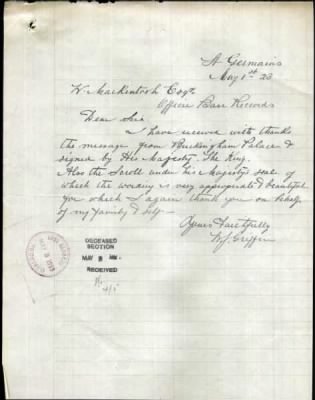 St Germains
May 1st 23
W. Mackintosh Esqr
Officer Base Records
Dear Sir
I have received with thanks
the message from Buckingham Palace &
signed by His Majesty The King.
Also the Scroll under his Majesty's seal of
which the wording is very appropriate & beautiful
for which I again thank you on behalf
of my Family & Self.
Yours Faithfully
W. J. Griffin
DECEASED
SECTION
MAY 8
RECEIVED